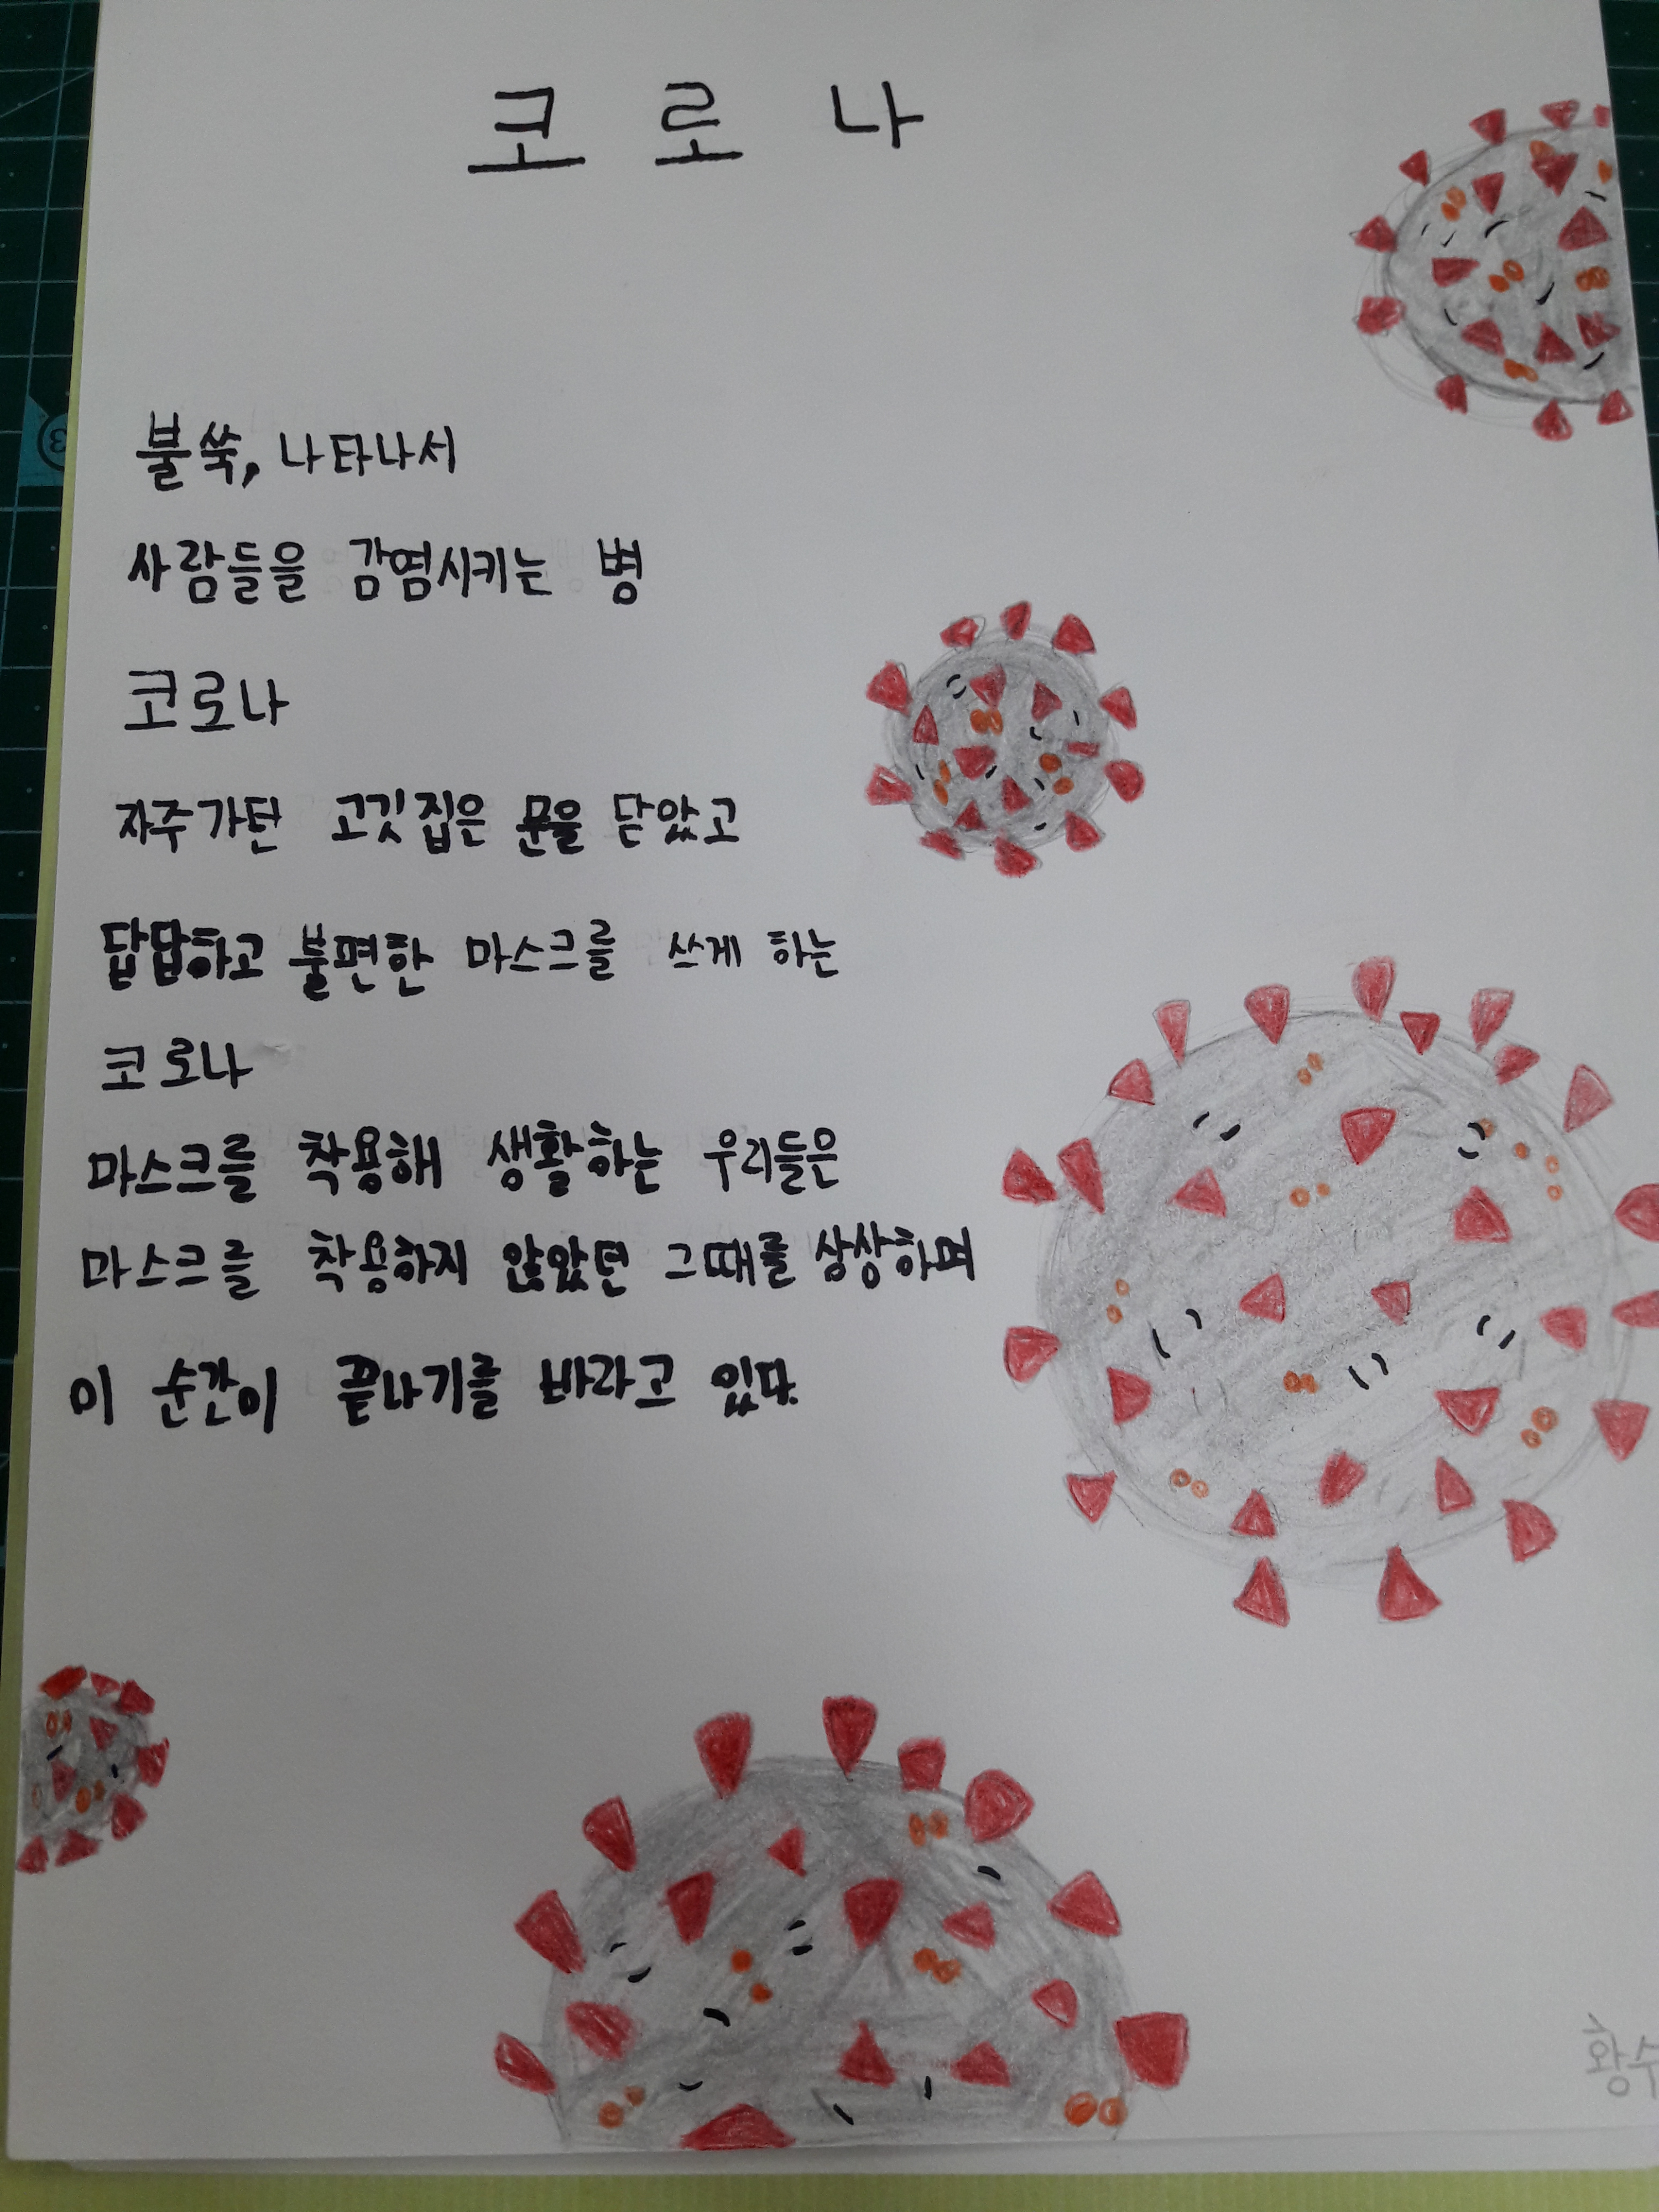 코로나
불쑥, 나타나서
사람들을 감염시키는 병
코로나
자주가던 고깃집은 문을 닫았고
답답하고 불편한 마스크를 쓰게 하는
코로나
마스크를 착용해 생활하는 우리들은
마스크를 착용하지 않았던 그때를 상상하며
이 순간이 끝나기를 바라고 있다.
황수